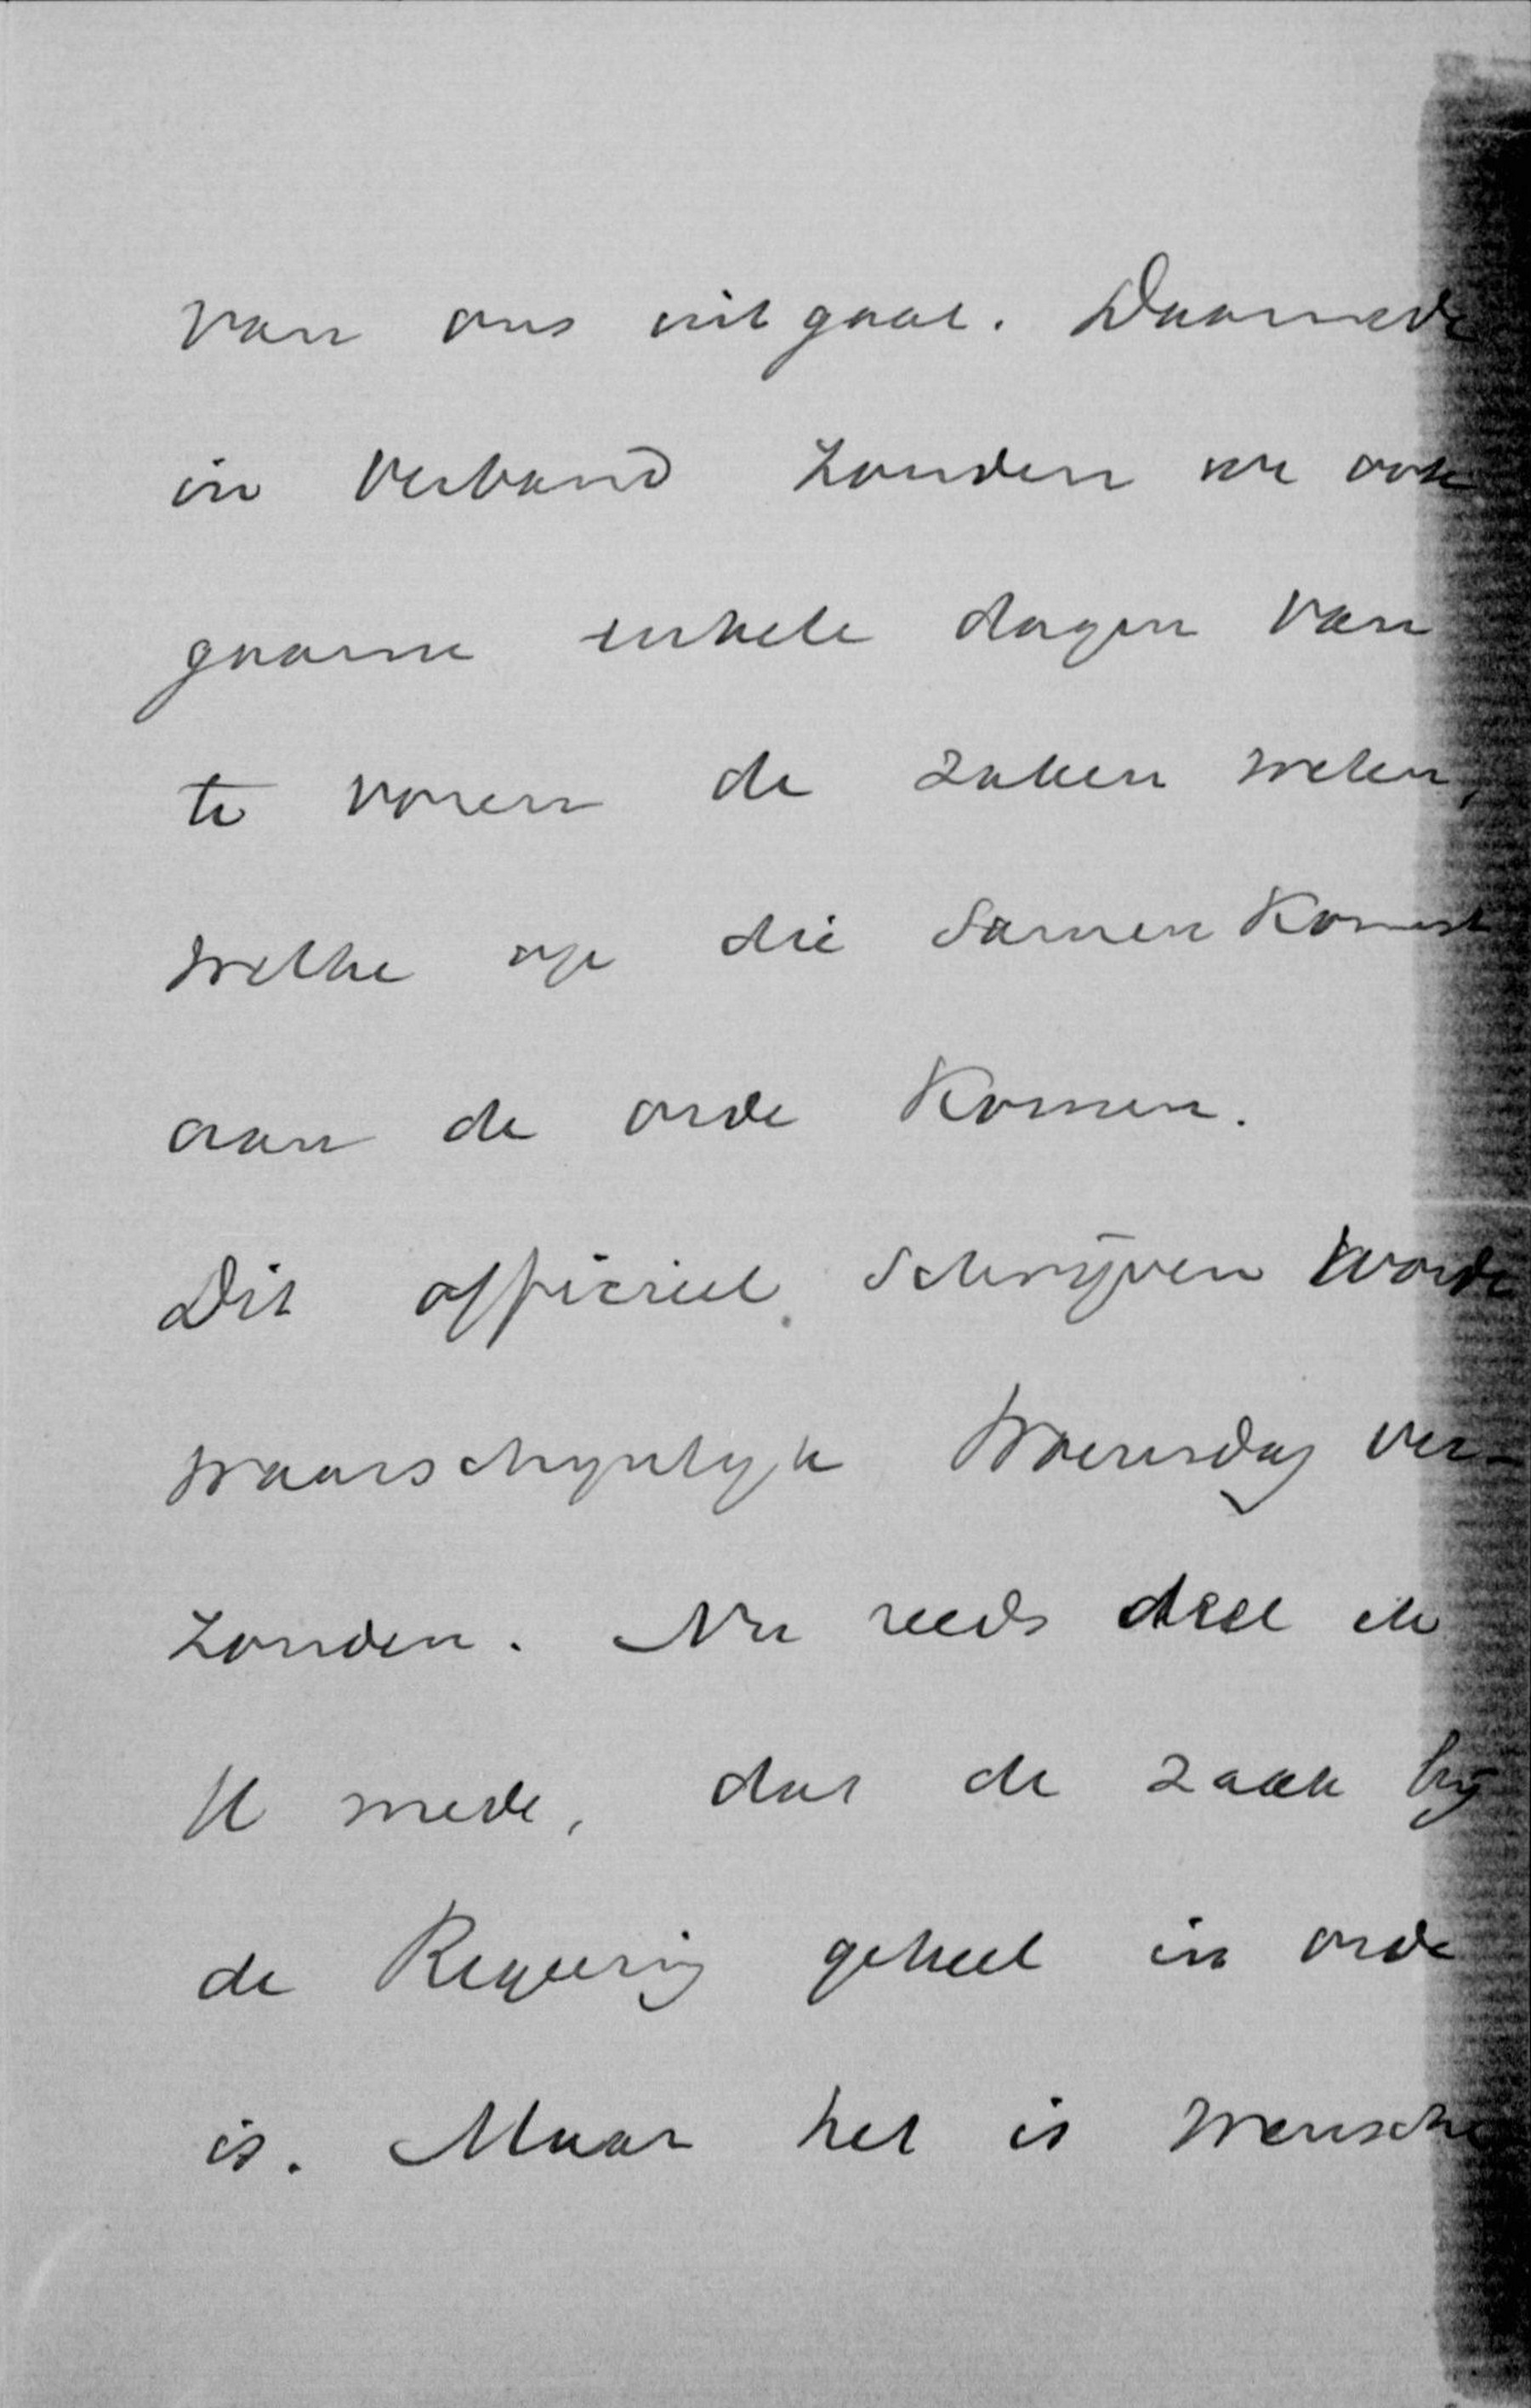 van ons uitgaat. Daarmede
in verband zouden we ook
gaarne enkele dagen van
te voren de zaken weten,
welke op die samenkomst
aan de orde komen.
Dit officieel schrijven wordt
waarschijnlijk Woensdag ver-
zonden. Nu reeds deel ik
U mede, dat de zaak bij
de Regeering geheel in orde
is. Maar het is